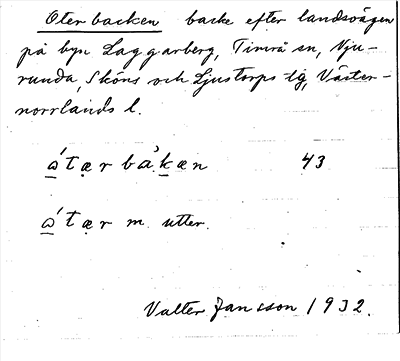 Oterbacken backe efter landsvägen
på byn Laggarberg, Timrå sn, Nju-
runda, Sköns och Ljustorps tig, Väster-
norrlands l.
ώ́tær bákæn 43
ώ́tær m. utter.
Valter Jansson 1932.